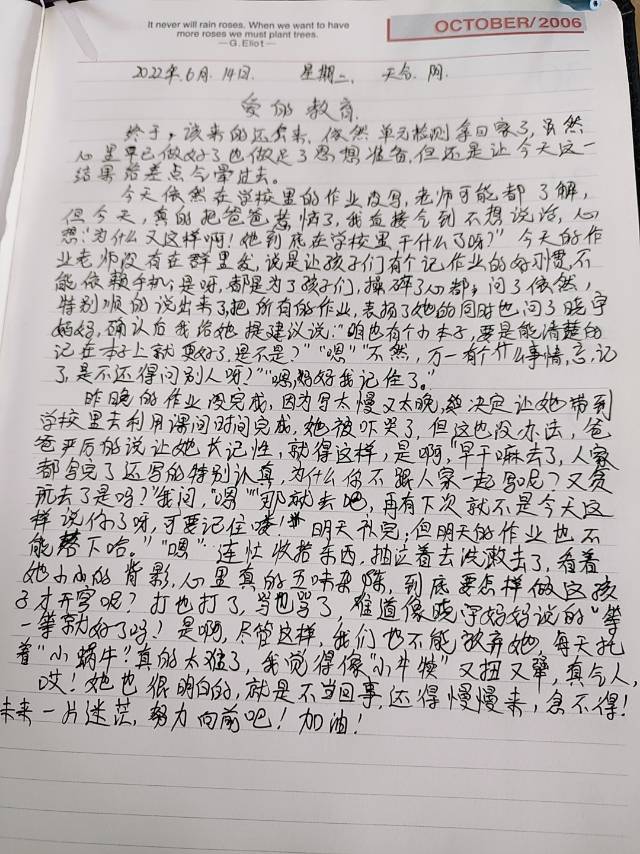 It never will rain roses. When we want to have
more roses we must plant trees.
—G.Eliot—
OCTOBER/2006
2022年6月14日. 星期二. 天气.阴.
爱的教育.
终于,该来的还是来,依然单元检测拿回家了,虽然
心里早已做好了也做足了思想准备,但还是让今天这一
结果给差点气晕过去。
今天依然在学校里的作业没写,老师可能都了解,
但今天,真的把爸爸惹恼了,我直接气到不想说话,心
想:"为什么又这样啊!她到底在学校里干什么了呀?"今天的作
业老师没有在群里发,说是让孩子们有个记作业的好习惯,不
能依赖手机;是呀,都是为了孩子们,操碎了心都;问了依然,
特别顺的说出来了,把所有的作业,表扬了她的同时也问了晓宇
妈妈,确认后我给她提建议说:"咱也有个小本子,要是能清楚的
记在本子上就更好了,是不是?""嗯""不然,万一有个什么事情,忘记
了,是不还得问别人呀?""嗯,妈妈我记住了。"
昨晚的作业没完成,因为写太慢又太晚,决定让她带到
学校里去利用课间时间完成,她被吓哭了,但这也没办法,爸
爸严厉的说让她长记性,就得这样,是啊,"早干嘛去了,人家
都写完了还写的特别认真,为什么你不跟人家一起写呢?又贪
玩去了是吗?"我问,"嗯""那就去吧,再有下次就不是今天这
样说你了呀,可要记住喽!明天补完,但明天的作业也不
能落下哈。""嗯"连忙收拾东西,抽泣着去洗漱去了,看着
她小小的背影,心里真的五味杂陈,到底要怎样做这孩
子才开窍呢?打也打了,骂也骂了,难道像晓宇妈妈说的"等
一等就好了吗?是啊,尽管这样,我们也不能放弃她,每天托
着"小蜗牛"真的太猛了,我觉得像"小牛犊"又扭又犟,真气人,
哎!她也很明白的,就是不当回事,还得慢慢来,急不得!
未来一片迷茫,努力向前吧!加油!